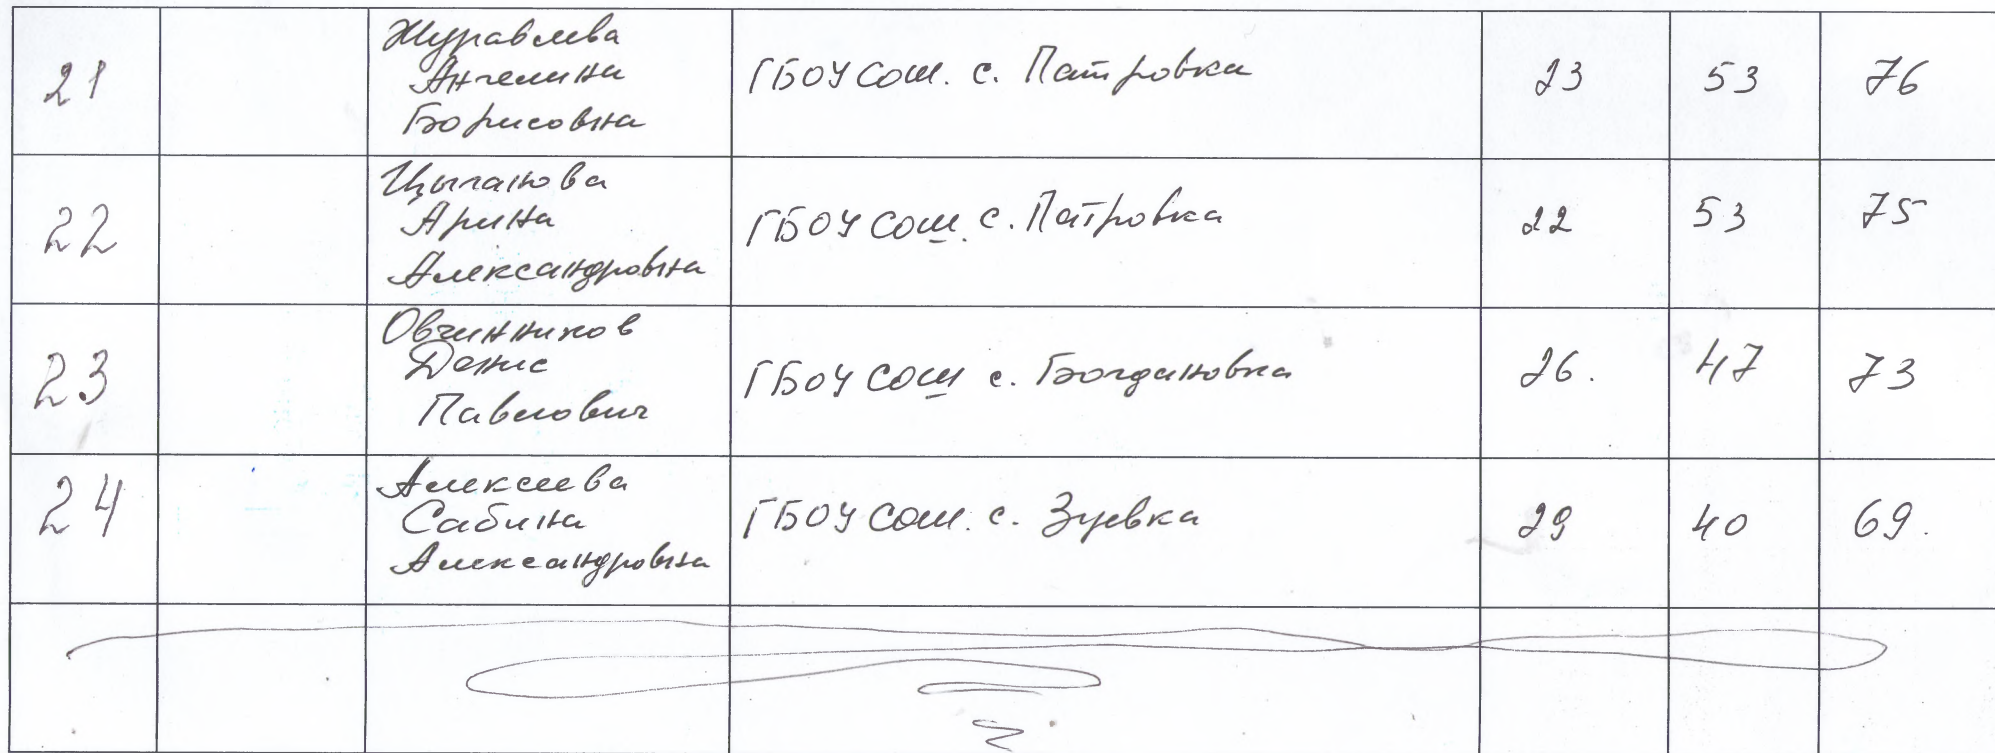 21 Журавлева Ангелина Борисовна ГБОУ СОШ. с. Патровка 23 53 76
22 Цыганова Арина Александровна ГБОУ СОШ. с. Патровка 22 53 75
23 Овчинников Денис Павлович ГБОУ СОШ с. Богдановка 26. 47 73
24 Алексеева Сабина Александровна ГБОУ СОШ. с. Зуевка 29 40 69.